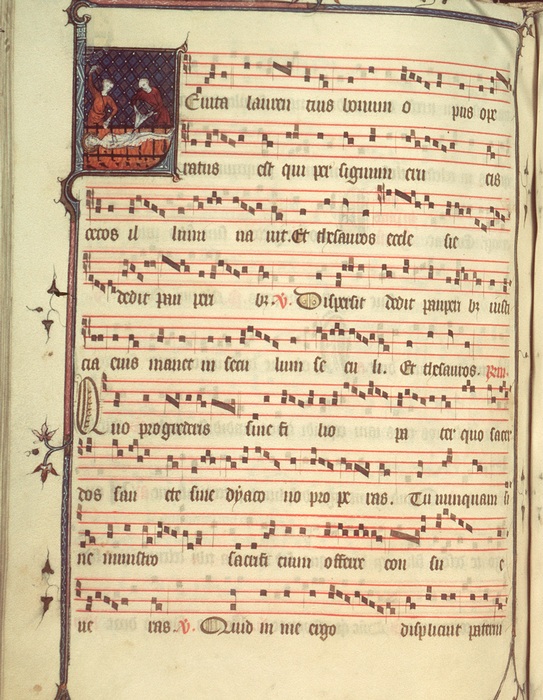 Leuita lauren cius bonum o pus ope
ratus est qui per signum cru cis
cecos il lumi na uit. Et thesauros eccle sie
dedit pau peri bz. V. Dispersit dedit pauperi bz iusti
cia eius manet in secu lum se cu li. Et thesauros.
Quo progrederis sine fi lio pa ter quo sacer
dos san cte sine dyaco no pro pe ras. Tu nunquam si
ne ministro sacrifi cium offerre con su e
ue ras. V. Quid in me ergo displicuit paterni